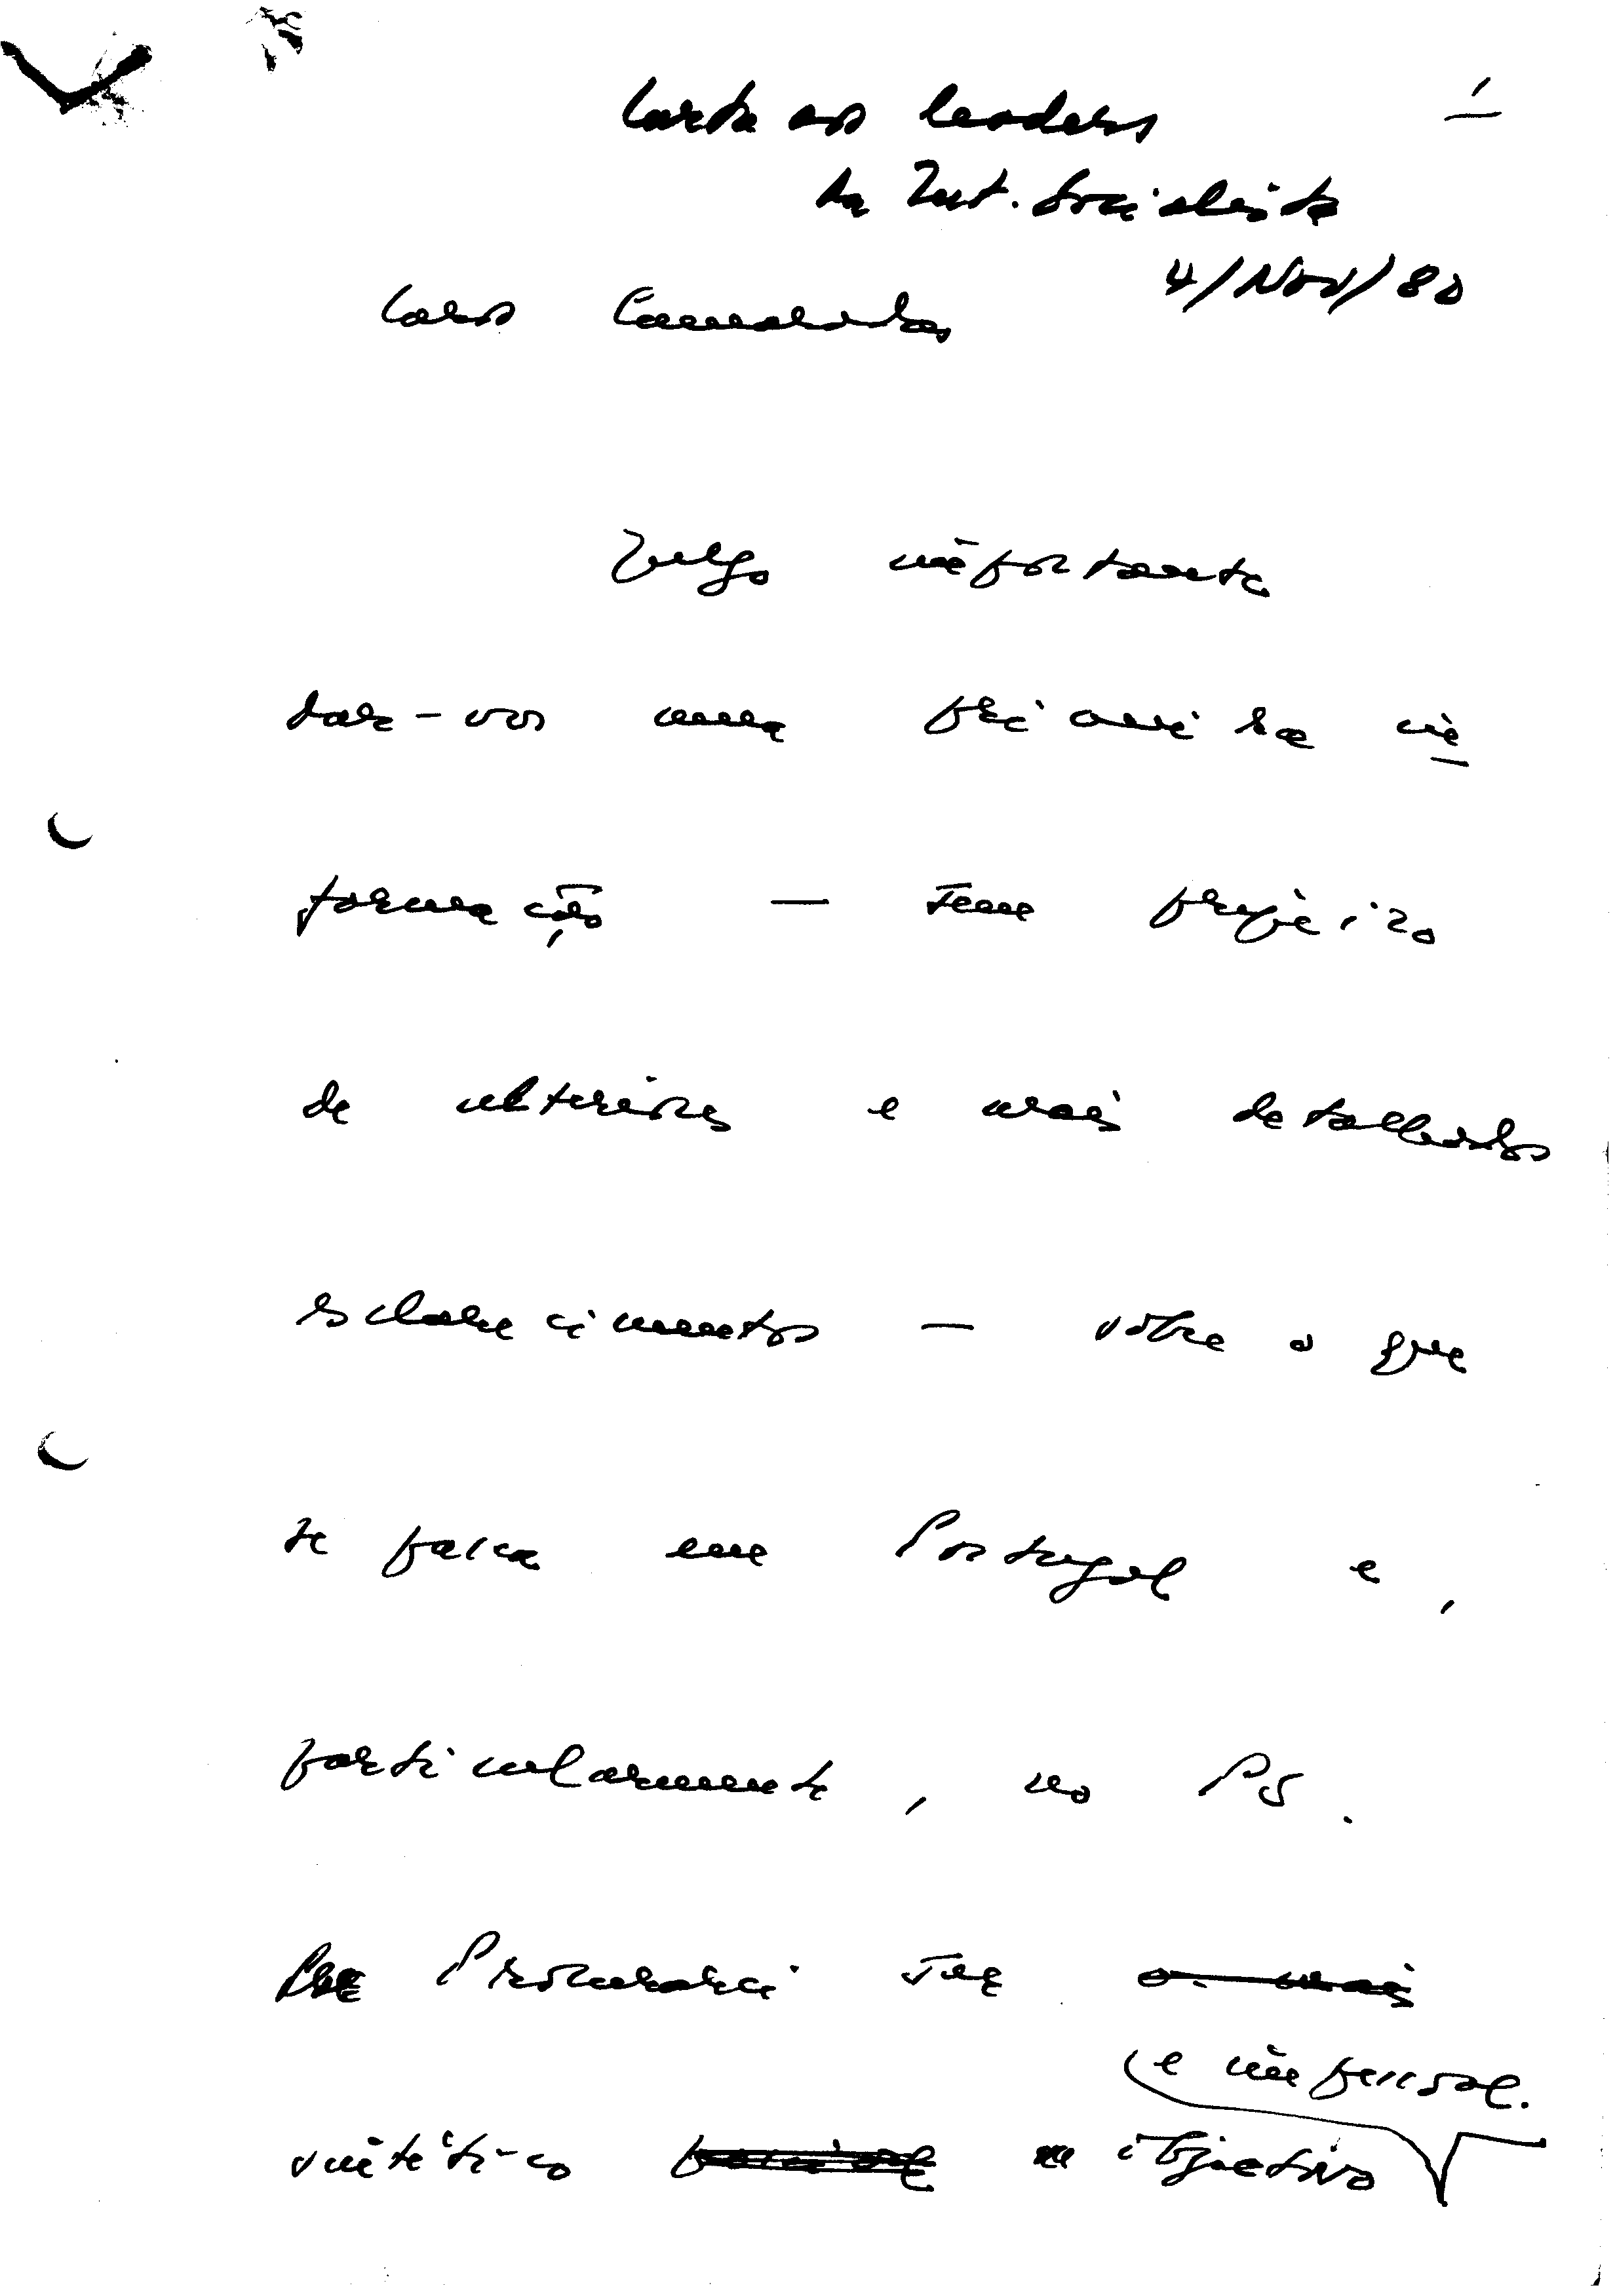 Carta aos leaders
da Int. Socialista
4/Nov/80
Caros Camaradas,
Julgo importante
dar-vos uma primeira in
formação — sem prejuízo
de ulteriores e mais detalhados
esclarecimentos — sobre o que
se passa em Portugal e,
particularmente, no PS.
Procurarei ser o mais
e impessoal.
sintético possível e objectivo